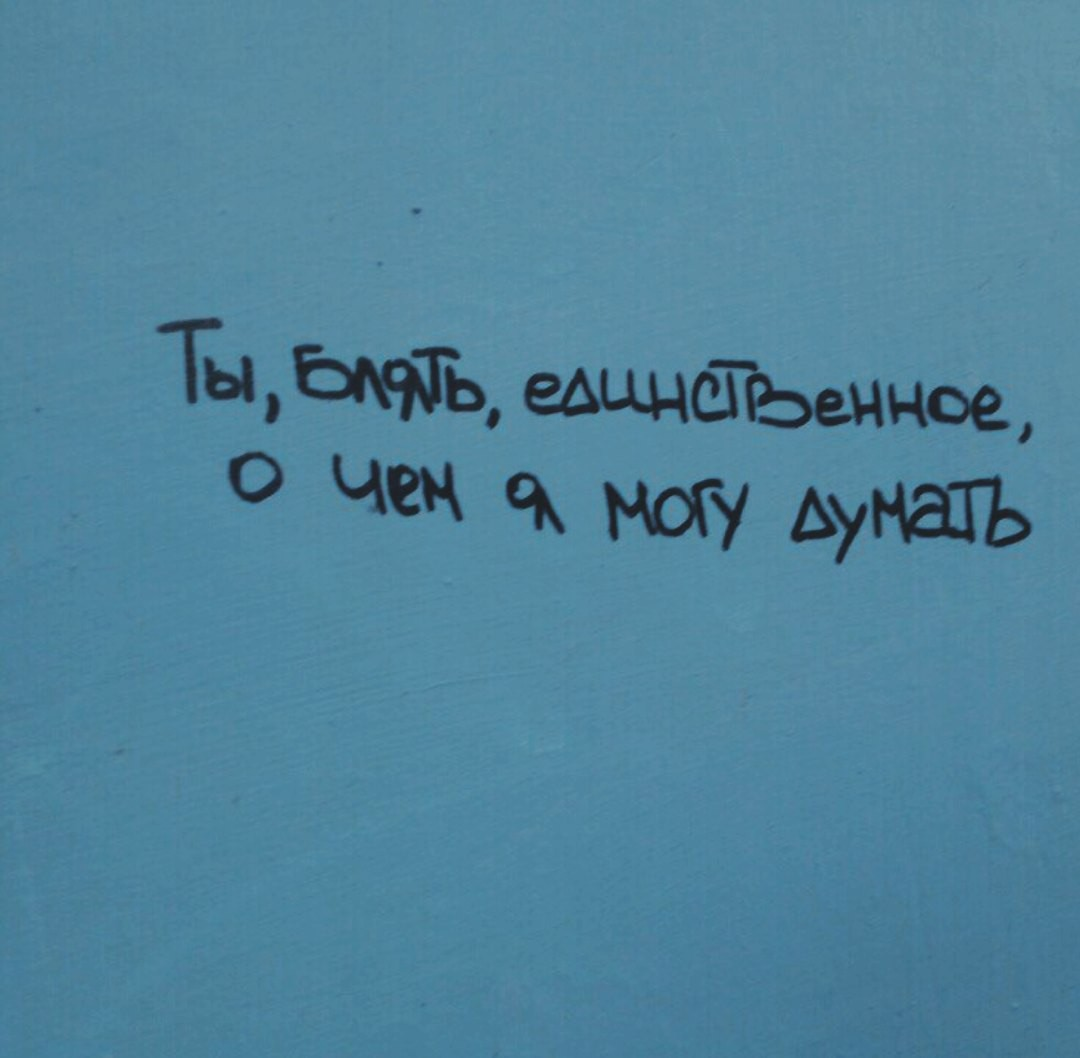 Ты, блять, единственное,
о чем я могу думать